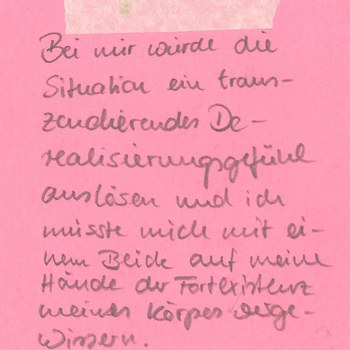 Bei mir würde die
Situation ein trans-
zendierendes De-
realisierungsgefühl
auslösen und ich
müsste mich mit ei-
nem Blick auf meine
Hände der Fortexistenz
meines Körpers verge-
wissern.